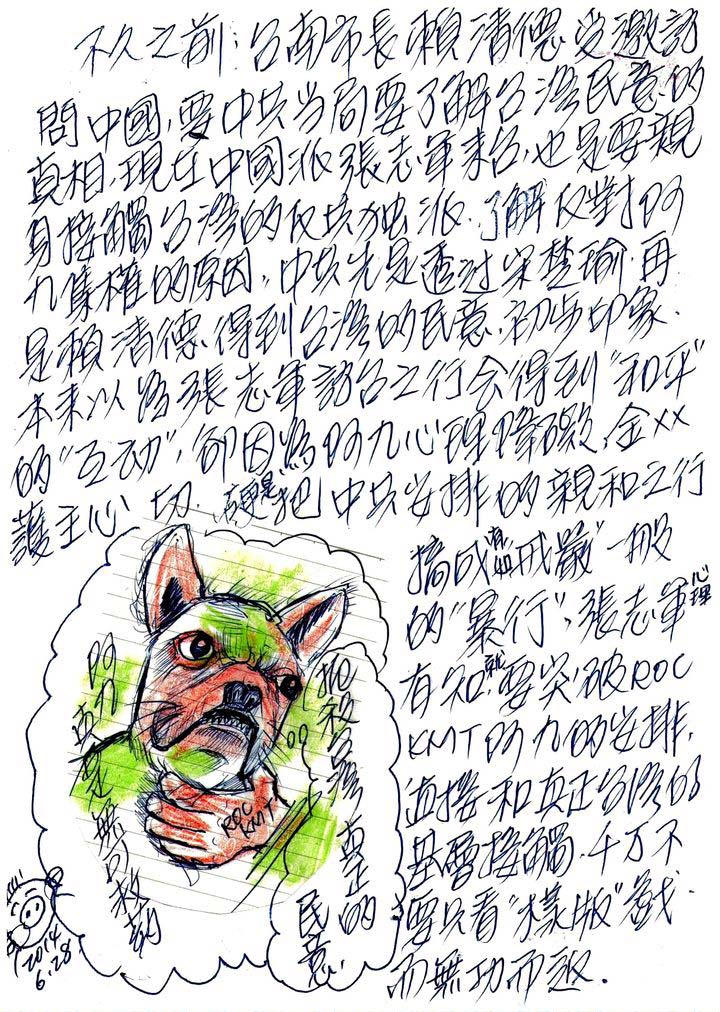 不久之前：台南市長賴清德.受邀訪
問中國，要中共当局要了解台湾民意的
真相.現在中國派張志軍来台,也是要親
身接觸台湾的反共独派.了解反對阿
九集權的原因,中共先是透过宋楚瑜.再
是賴清德.得到台湾的民意.初步印象.
本来以為張志軍訪台之行会得到"和平"
的"互动",卻因為阿九心理障礙.金XX
護主心切.硬是把中共安排的親和之行
搞成有如"戒嚴"一般
的"暴行",張志軍心理
有知.就要突破ROC
KMT阿九的安排.
直接和真正台湾的
基層接觸.千万不
要只看"樣版"戲.
而無功而返.
阿九真是無可救药
扼殺台湾真正的
民意.
ROC
KMT
2014
6.28